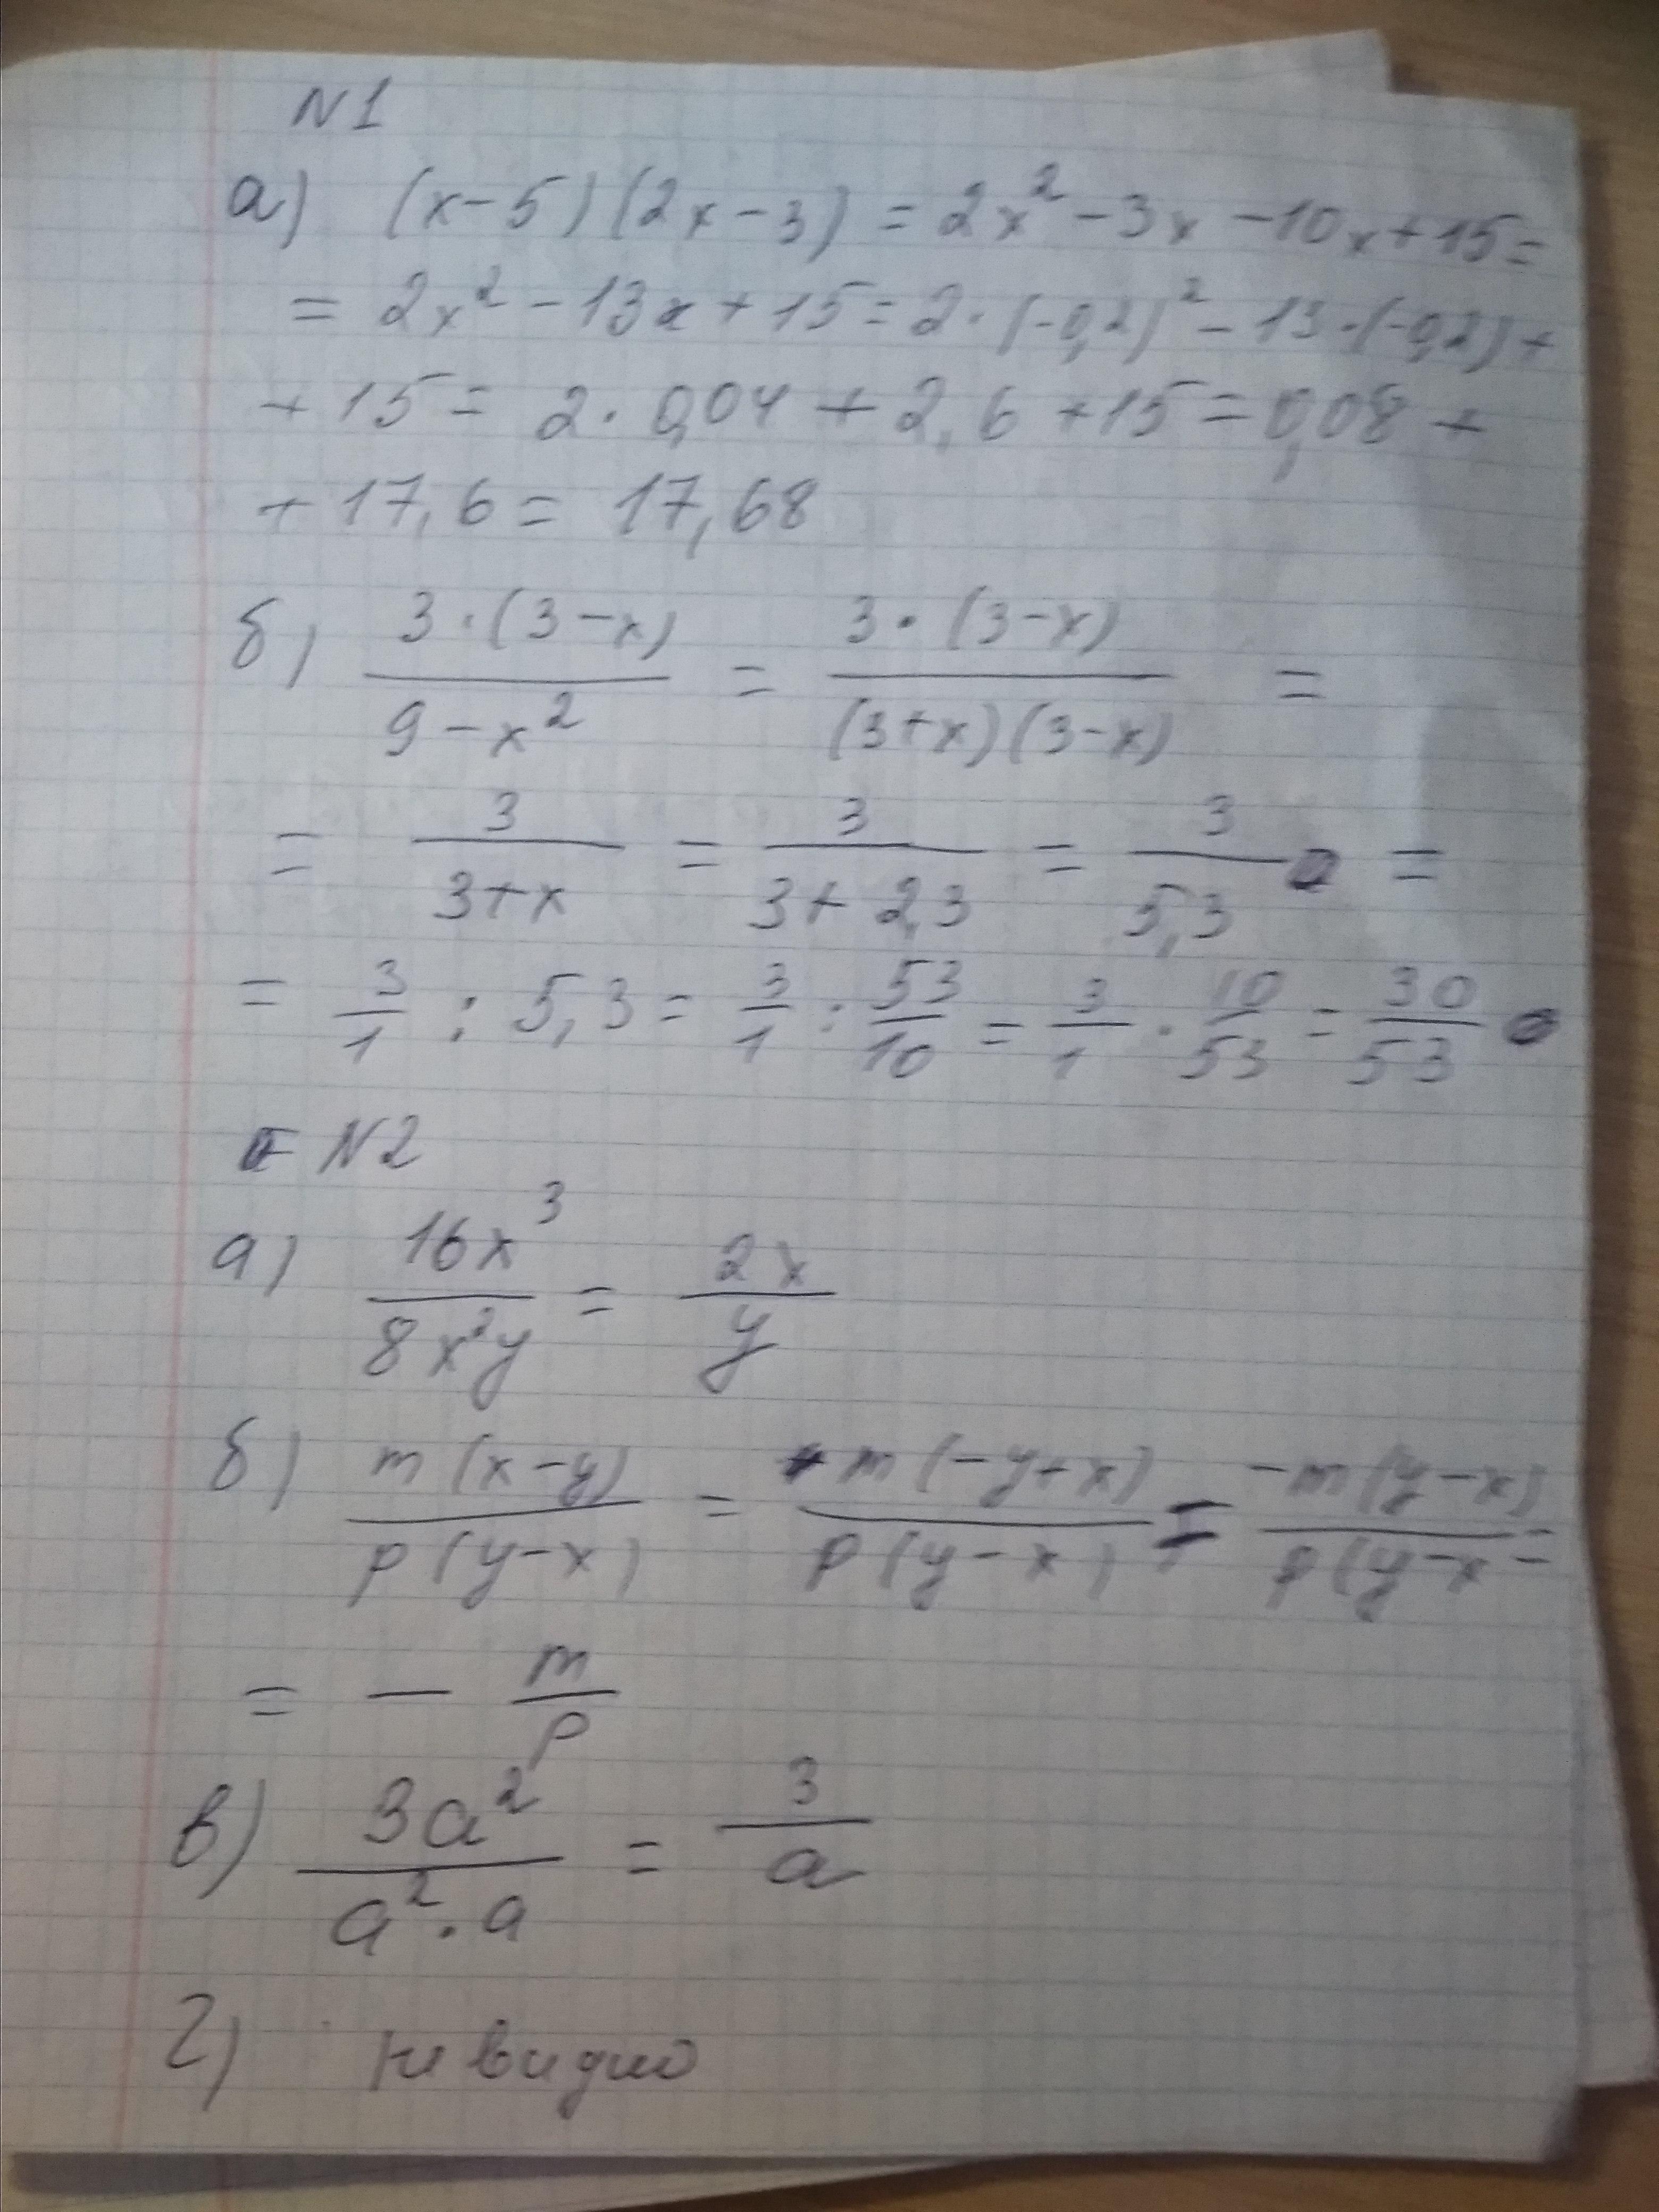 N1
а) (x-5)(2x-3) = 2x² - 3x - 10x + 15 =
= 2x² - 13x + 15 = 2·(-0,2)² - 13·(-0,2) +
+ 15 = 2·0,04 + 2,6 + 15 = 0,08 +
+ 17,6 = 17,68
б) 3·(3-x) / 9-x² = 3·(3-x) / (3+x)(3-x) =
= 3 / 3+x = 3 / 3+2,3 = 3 / 5,3 =
= 3/1 : 5,3 = 3/1 : 53/10 = 3/1 · 10/53 = 30/53
N2
а) 16x³ / 8x²y = 2x / y
б) m(x-y) / p(y-x) = m(-y+x) / p(y-x) = -m(y-x) / p(y-x =
= - m/p
в) 3a² / a²·a = 3 / a
г) не видно